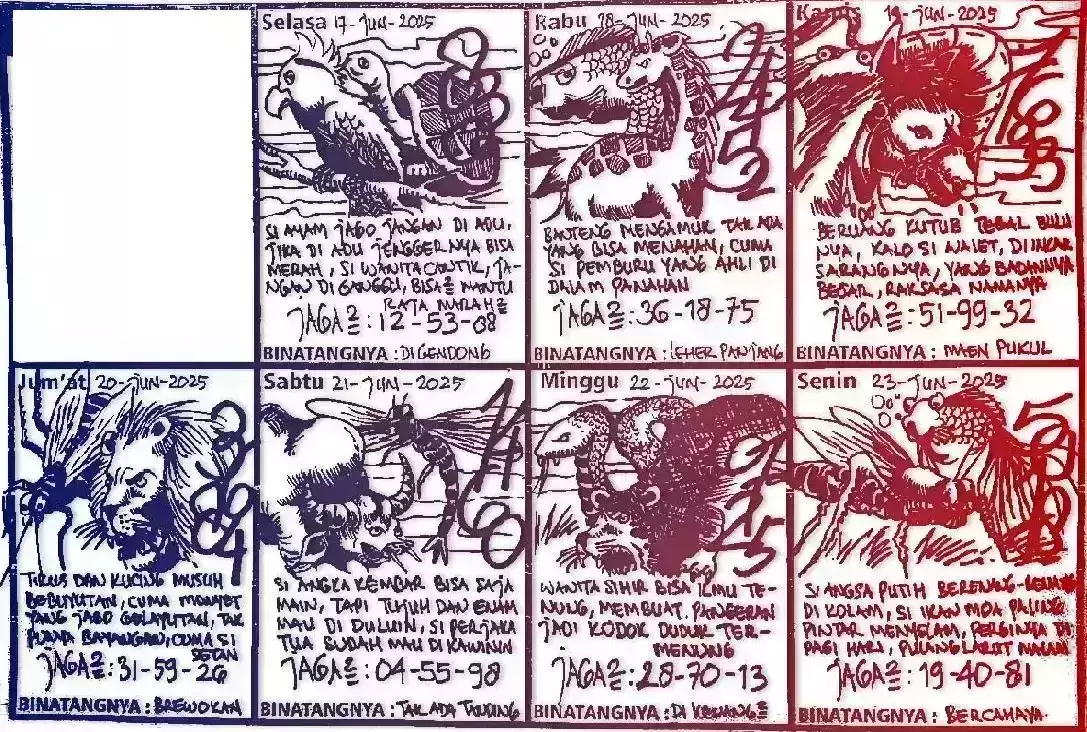 Selasa 17-JUN-2025
SI AYAM JAGO JANGAN DI ADU,
JIKA DI ADU JENGGERNYA BISA
MERAH, SI WANITA CANTIK, JA-
NGAN DI GANGGU, BISA2 MANTU
RATA MARAH2
JAGA2: 12-53-08
BINATANGNYA: DIGENDONG
Rabu 18-JUN-2025
2
4
5
BANTENG MENGAMUK TAK ADA
YANG BISA MENAHAN, CUMA
SI PEMBURU YANG AHLI DI
DALAM PANAHAN
JAGA2: 36-18-75
BINATANGNYA: LEHER PANJANG
Kamis 19-JUN-2025
BERUANG KUTUB TEBAL BULU
NYA, KALO SI WALET, DIINCAR
SARANGNYA, YANG BADANNYA
BESAR, RAKSASA NAMANYA
JAGA2: 51-99-32
BINATANGNYA: MAEN PUKUL
Jum'at 20-JUN-2025
TIKUS DAN KUCING MUSUH
BEBUYUTAN, CUMA MONYET
YANG JAGO GELAYUTAN, TAK
PUNYA BAYANGAN, CUMA SI
SETAN
JAGA2: 31-59-26
BINATANGNYA: BREWOKAN
Sabtu 21-JUN-2025
SI ANGKA KEMBAR BISA SAJA
MAIN, TAPI TUJUH DAN ENAM
MAU DI DULUIN, SI PERJAKA
TUA SUDAH MAU DI KAWININ
JAGA2: 04-55-98
BINATANGNYA: TAK ADA TANDING
Minggu 22-JUN-2025
WANITA SIHIR BISA ILMU TE-
NUNG, MEMBUAT PANGERAN
JADI KODOK DUDUK TER-
MENUNG
JAGA2: 28-70-13
BINATANGNYA: DI KENANG2
Senin 23-JUN-2025
SI ANGSA PUTIH BERENANG-RENANG
DI KOLAM, SI IKAN MOA PALING
PINTAR MENYELAM, PERGINYA DI
PAGI HARI, PULANG LARUT MALAM
JAGA2: 19-40-81
BINATANGNYA: BERCAHAYA